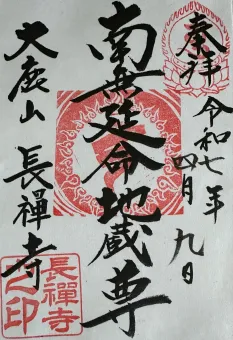 奉拜
令和七年
四月九日
南無延命地蔵尊
大鹿山
長禪寺
長禪寺
之印